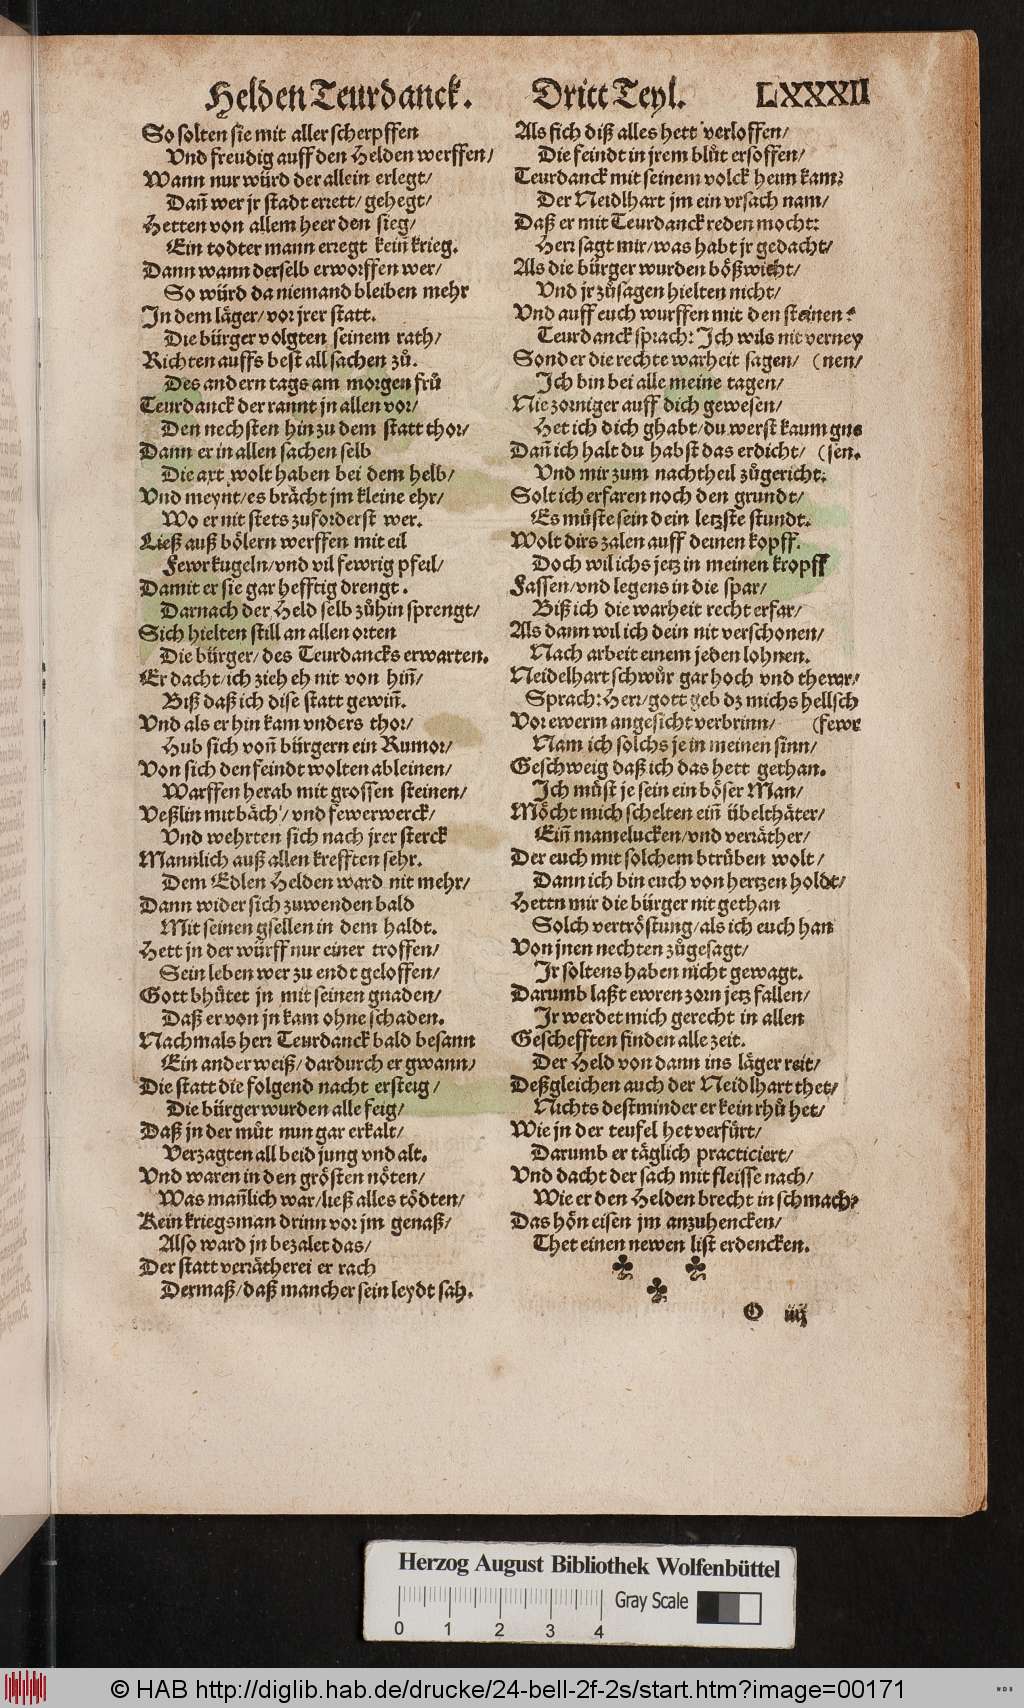 Helden Teurdanck. Dritt Teyl. LXXXII
So solten sie mit aller scherpffen
Vnd freudig auff den Helden werffen/
Wann nur würd der allein erlegt/
Dañ wer jr stadt errett/ gehegt/
Hetten von allem heer den sieg/
Ein todter mann erregt kein̄ krieg.
Dann wann derselb erworffen wer/
So würd da niemand bleiben mehr
In dem läger/ vor jrer statt.
Die bürger volgten seinem rath/
Richten auffs best all sachen zů.
Des andern tags am morgen frü
Teurdanck der rannt jn allen vor/
Den nechsten hin zu dem statt thor/
Dann er in allen sachen selb
Die art wolt haben bei dem helb/
Vnd meynt/ es brächt jm kleine ehr/
Wo er nit stets zuforderst wer.
Ließ auß bölern werffen mit eil
Fewrkugeln/ vnd vil fewrig pfeil/
Damit er sie gar hefftig drengt.
Darnach der Held selb zůhin sprengt/
Sich hielten still an allen orten
Die bürger/ des Teurdancks erwarten.
Er dacht/ ich zieh eh nit von hin̄/
Biß daß ich dise statt gewin̄.
Vnd als er hin kam vnders thor/
Hub sich von̄ bürgern ein Rumor/
Von sich den feindt wolten ableinen/
Warffen herab mit grossen steinen/
Veßlin mit bäch/ vnd fewerwerck/
Vnd wehrten sich nach jrer sterck
Mannlich auß allen krefften sehr.
Dem Edlen Helden ward nit mehr/
Dann wider sich zuwenden bald
Mit seinen gsellen in dem haldt.
Hett jn der würff nur einer troffen/
Sein leben wer zu endt geloffen/
Gott bhütet jn mit seinen gnaden/
Daß er von jn kam ohne schaden.
Nachmals herr Teurdanck bald besann
Ein ander weiß/ dardurch er gwann/
Die statt die folgend nacht ersteig/
Die bürger wurden alle feig/
Daß jn der můt nun gar erkalt/
Verzagten all beid jung vnd alt.
Vnd waren in den grösten nöten/
Was man̄lich war/ ließ alles tödten/
Kein kriegsman drinn vor jm genaß/
Also ward jn bezalet das/
Der statt verrätherei er rach
Dermaß/ daß mancher sein leydt sah.
Als sich diß alles hett verloffen/
Die feindt in jrem blůt ersoffen/
Teurdanck mit seinem volck heim kam:
Der Neidlhart jm ein vrsach nam/
Daß er mit Teurdanck reden mocht:
Herr sagt mir/ was habt jr gedacht/
Als die bürger wurden bößwicht/
Vnd jr zůsagen hielten nicht/
Vnd auff euch wurffen mit den steinen?
Teurdanck sprach: Ich wils nit verney
Sonder die rechte warheit sagen/ (nen/
Ich bin bei alle meine tagen/
Nie zorniger auff dich gewesen/
Het ich dich ghabt/ du werst kaum gne
Dañ ich halt du habst das erdicht/ (sen.
Vnd mir zum nachtheil zůgericht:
Solt ich erfaren noch den grundt/
Es müste sein dein letzste stundt.
Wolt dirs zalen auff deinen kopff.
Doch wil ichs jetz in meinen kropff
Fassen/ vnd legens in die spar/
Biß ich die warheit recht erfar/
Als dann wil ich dein nit verschonen/
Nach arbeit einem jeden lohnen.
Neidelhart schwůr gar hoch vnd thewr/
Sprach: Herr/ gott geb dz michs hellsch
Vor ewerm angesicht verbrinn/ (fewr
Nam ich solchs je in meinen sinn/
Geschweig daß ich das hett gethan.
Ich můst je sein ein böser Man/
Möcht mich schelten ein̄ übelthäter/
Ein̄ mamelucken/ vnd verräther/
Der euch mit solchem btrüben wolt/
Dann ich bin euch von hertzen holdt/
Hettn mir die bürger nit gethan
Solch vertröstung/ als ich euch han
Von jnen nechten zůgesagt/
Ir soltens haben nicht gewagt.
Darumb laßt ewren zorn jetz fallen/
Ir werdet mich gerecht in allen
Gescheffen finden alle zeit.
Der Held von dann ins läger reit/
Deßgleichen auch der Neidlhart thet/
Nichts destminder er kein rhů het/
Wie jn der teufel het verfürt/
Darumb er täglich practiciert/
Vnd dacht der sach mit fleisse nach/
Wie er den Helden brecht in schmach?
Das hön eisen jm anzuhencken/
Thet einen newen list erdencken.
O iiij
Herzog August Bibliothek Wolfenbüttel
Gray Scale
0 1 2 3 4
© HAB http://diglib.hab.de/drucke/24-bell-2f-2s/start.htm?image=00171